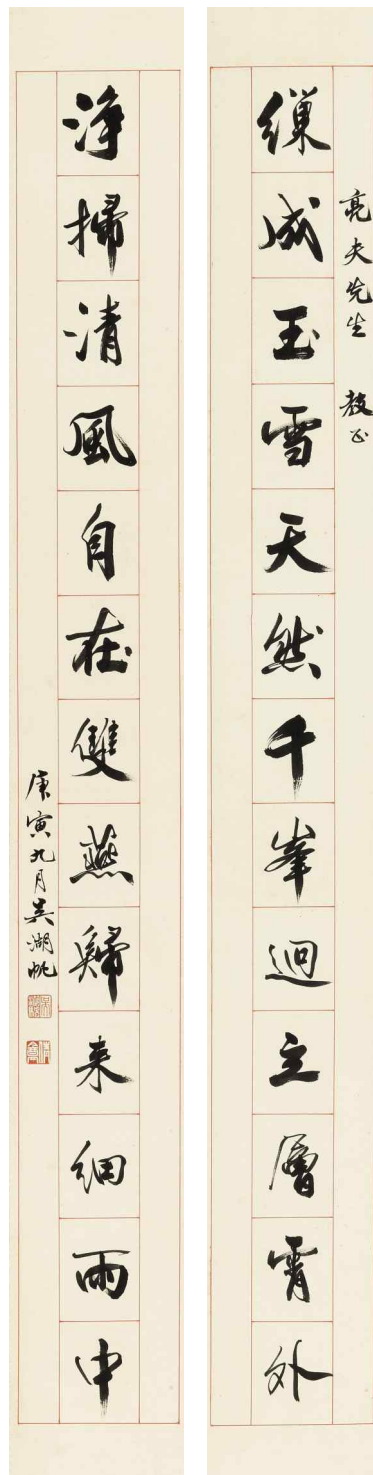 亮夫先生 教正
繅成玉雪天然千峯迥立層霄外
淨掃清風自在雙燕歸来細雨中
庚寅九月吴湖帆